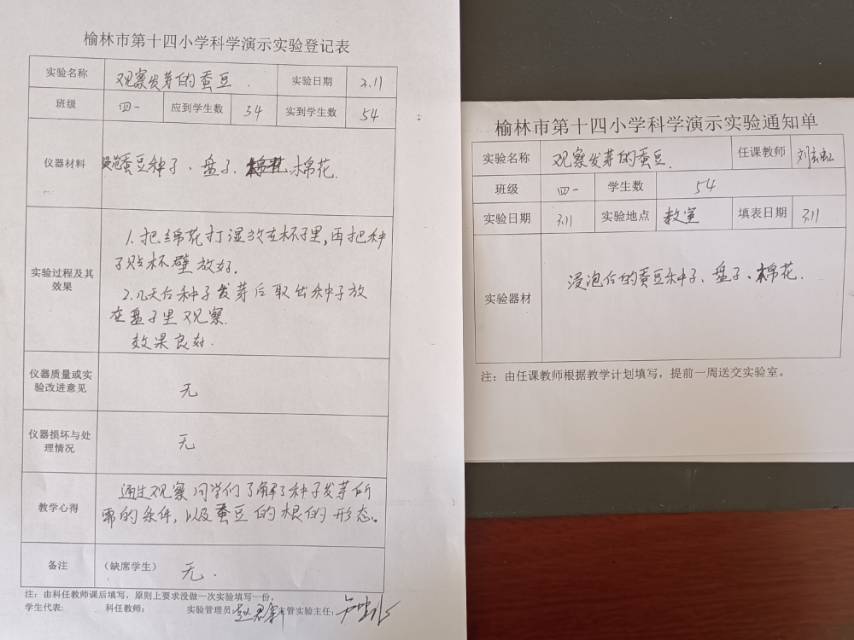 榆林市第十四小学科学演示实验登记表
实验名称 观察发芽的蚕豆. 实验日期 3.11
班级 四一 应到学生数 54 实到学生数 54
仪器材料 蚕豆种子、盘子、棉花.
实验过程及其效果
1.把绵花打湿放在杯子里,再把种
子贴杯壁放好.
2.几天后种子发芽后取出种子放
在盘子里观察.
效果良好.
仪器质量或实验改进意见 无
仪器损坏与处理情况 无
教学心得
通过观察同学们了解了种子发芽所
需的条件,以及蚕豆的根的形态。
备注 (缺席学生) 无.
注:由科任教师课后填写,原则上要求没做一次实验填写一份。
学生代表: 科任教师: 实验管理员: 管实验主任:
榆林市第十四小学科学演示实验通知单
实验名称 观察发芽的蚕豆. 任课教师
班级 四一 学生数 54
实验日期 3.11 实验地点 教室 填表日期 3.11
实验器材 浸泡后的蚕豆种子、盘子、棉花.
注:由任课教师根据教学计划填写,提前一周送交实验室。